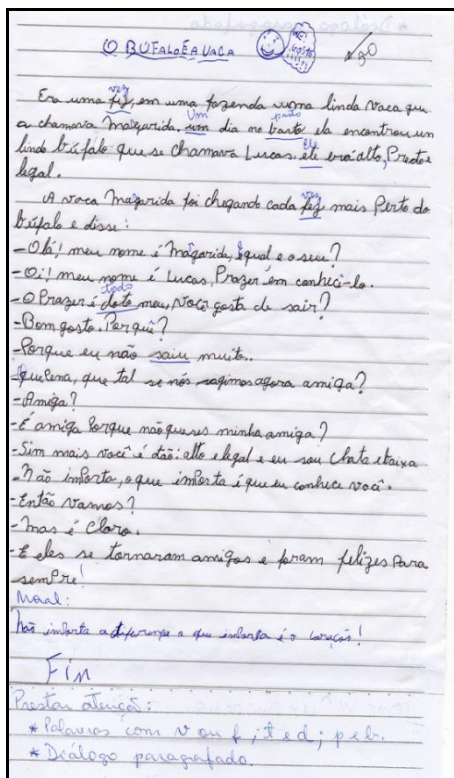 O BÚFALO E A VACA
vez
Era uma fiz, em uma fazenda uma linda vaca que
Um pasto
a chamava Magarida. um dia no basto ela encontrou un
ele
lindo búfalo que se chamava Lucas, ele erá alto, Preto e
legal.
vez
A vaca Magarida foi chegando cada fez mais Perto do
búfalo e disse:
-Olá! meu nome é Magarida, qual e o seu?
-Oi! meu nome é Lucas, Prazer em conheci-lo.
todo
-O Prazer é doto meu, você gosta de sair?
-Bom gosto. Porquê?
-Porque eu não saiu muito..
-que Pena, que tal se nós sagimos agora amiga?
-Amiga?
-É amiga Porque não queres minha amiga?
-Sim mais você é tão: alto e legal e eu sou chata e baixa
-Não imPorta, o que imPorta é que eu conhece você.
-Então vamos?
-mas é Claro.
-E eles se tornaram amigos e foram felizes Para
semPre!
Moral:
Não imborta a diferença o que imborta é o coração!
Fin
Prestar atenção:
* Palavras com v ou f; t e d; p e b.
* Diálogo paragrafado.